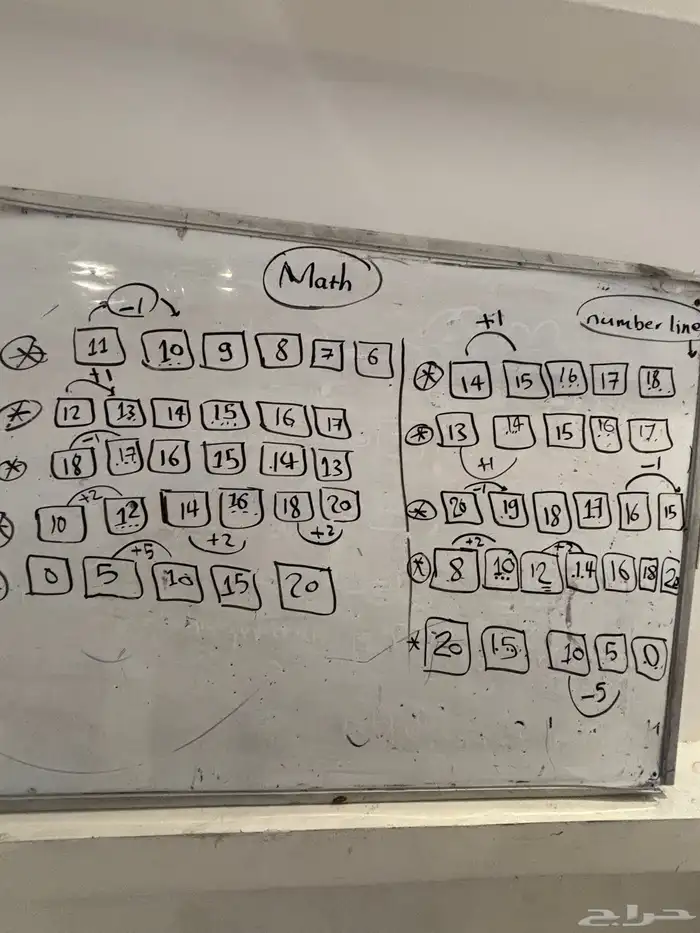 Math
number line
-1
11 10 9 8 7 6
+1
12 13 14 15 16 17
-1
18 17 16 15 14 13
+2
10 12 14 16 18 20
+2 +2
+5
0 5 10 15 20
+1
14 15 16 17 18
13 14 15 16 17
+1
-1 -1
20 19 18 17 16 15
+2 +2
8 10 12 14 16 18 20
20 15 10 5 0
-5
حراج